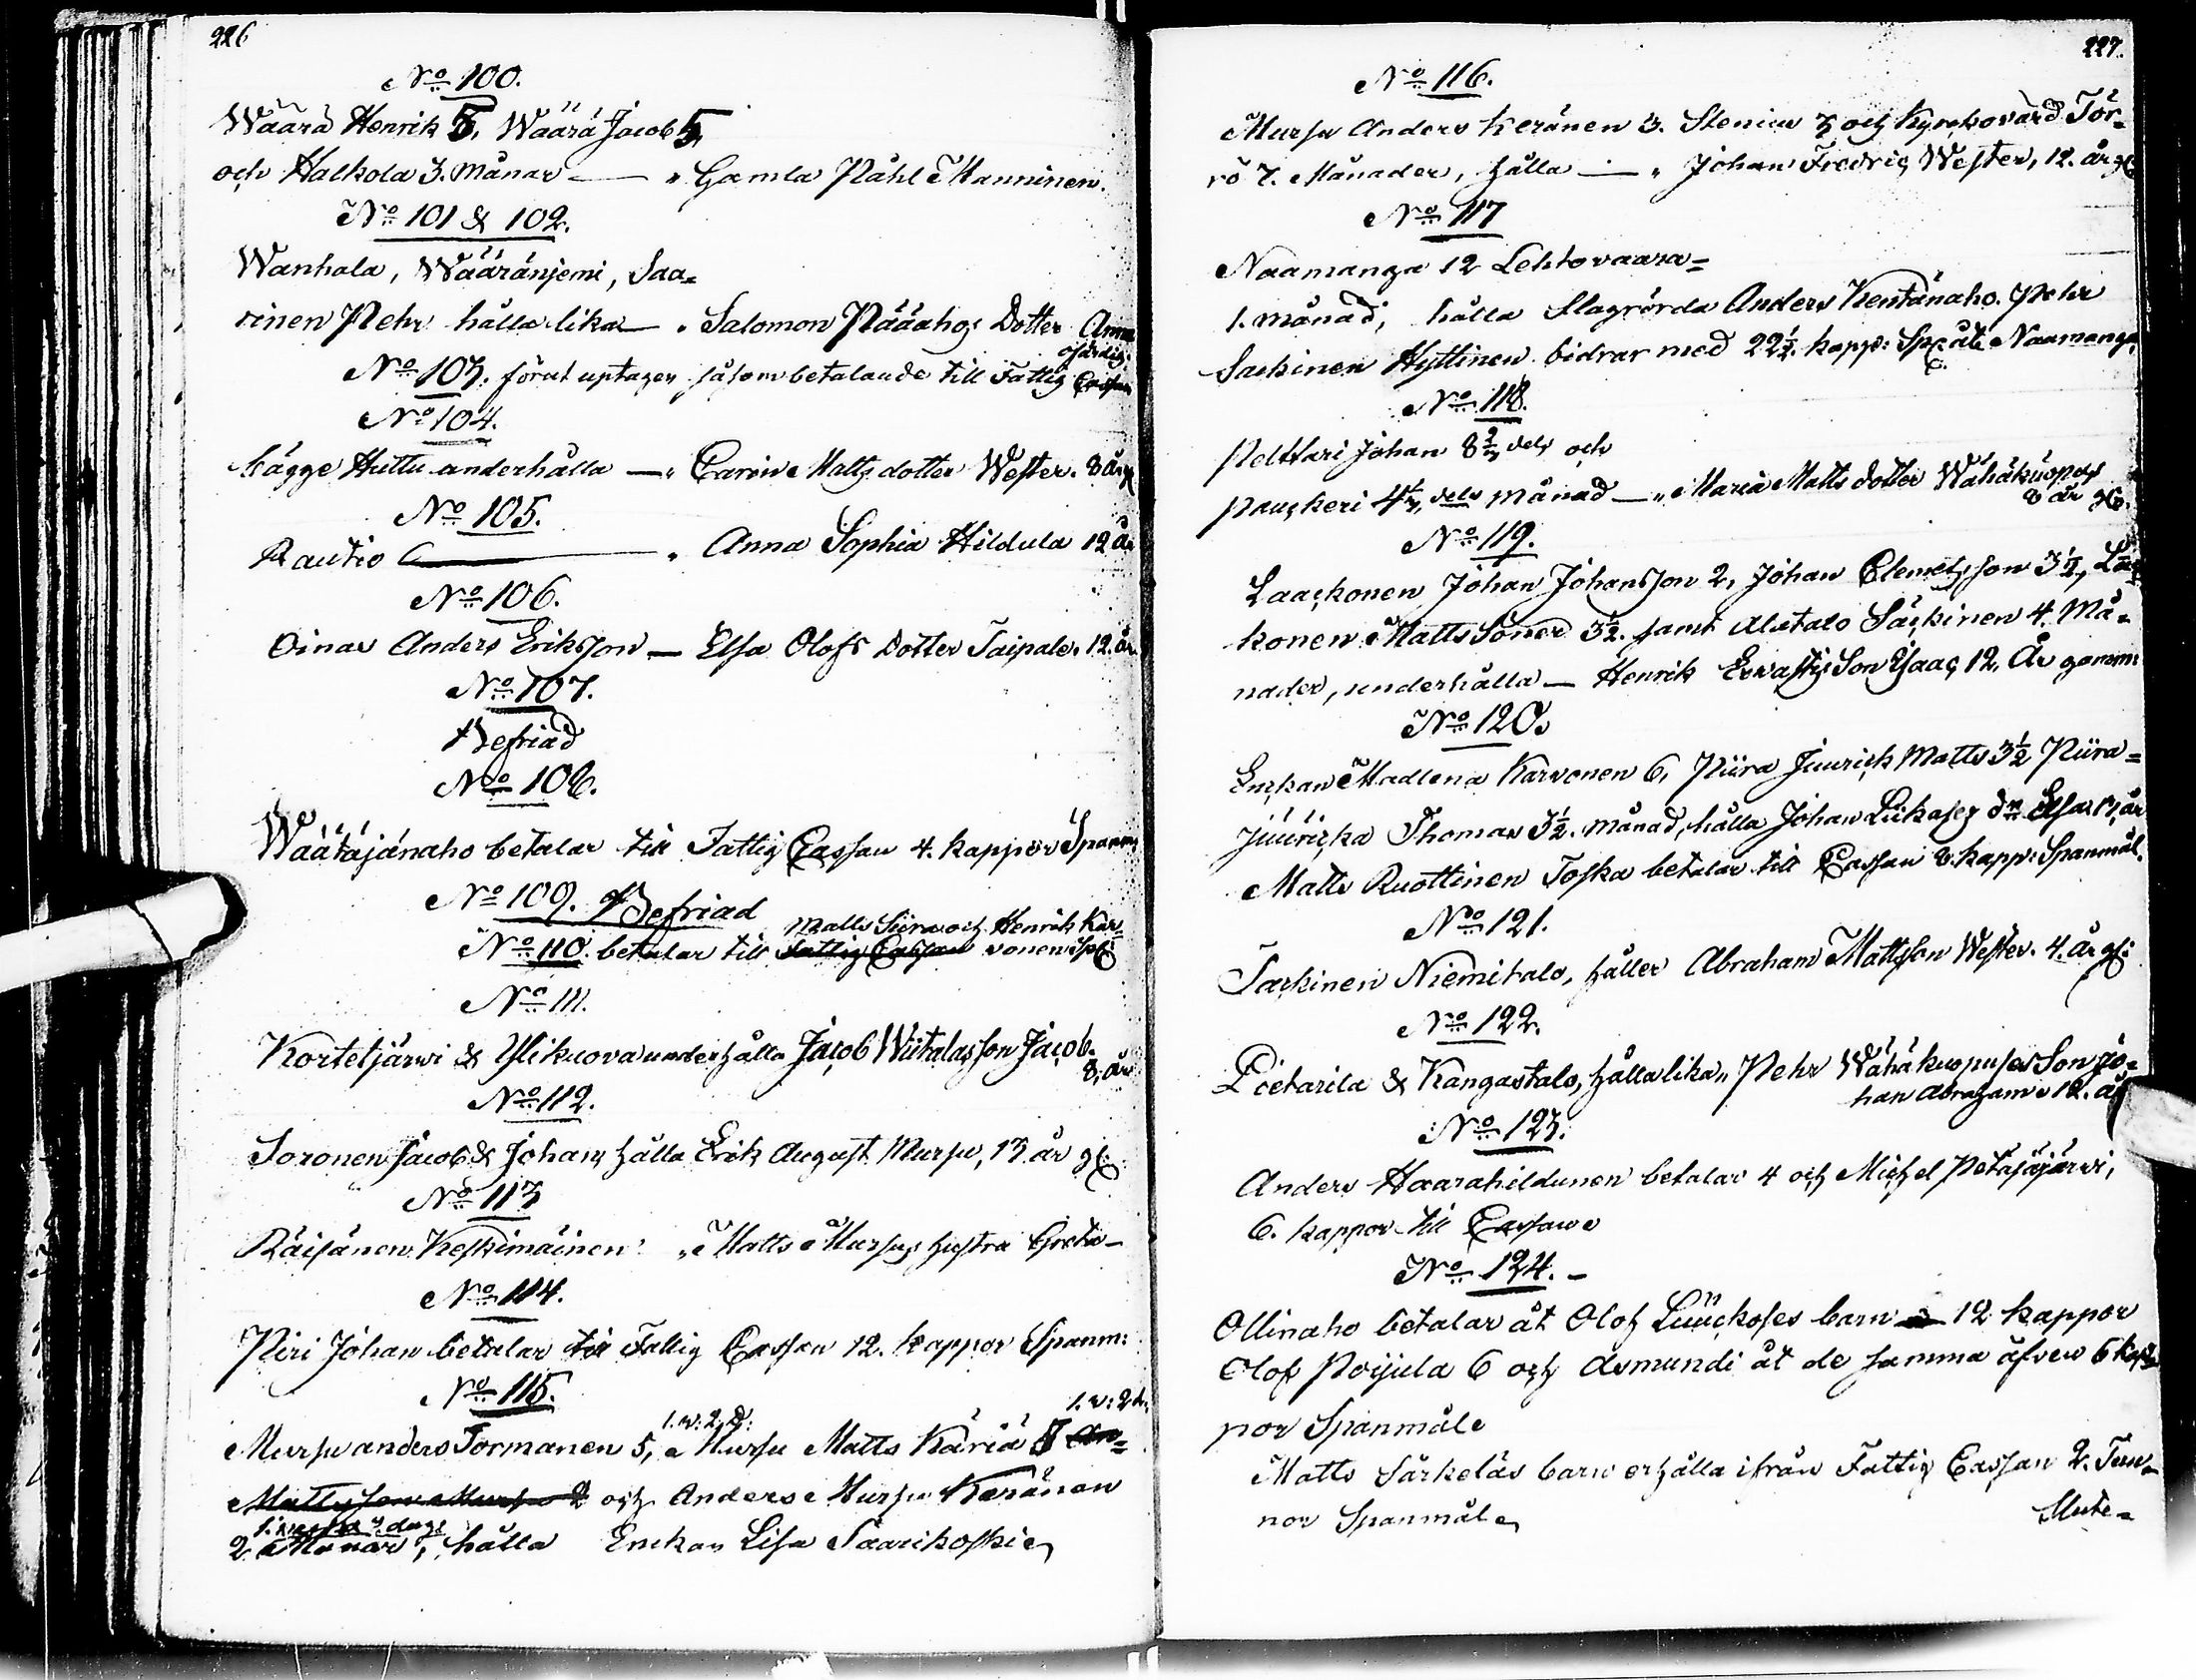 226
No 100.
Wäärä Henrik 5, Wäärä Jacob 5,
och Halkola 3. Månar — " Gamla Påhl Manninen.
No 101 & 102.
Wanhala, Wääränjemi, Saa=
rinen Pehr hålla lika — " Salomon Pääahos Dotter Anna
ofärdig.
No 103. förut uptagen såsom betalande till Fattig Cassan
No 104.
bägge Huttu underhålla — " Carin Matts dotter Wester. 8 år gl
No 105.
Rautio — " Anna Sophia Hildula 12 år
No 106.
Oinas Anders Eriksson — Elsa Olofs Dotter Taipale. 12. år
No 107.
Befriad
No 108.
Wäätäjänaho betalar till Fattig Cassan 4. kappor Spanm
No 109. Befriad
Matts Siira och Henrik Kar=
No 110. betalar till Fattig Cassan vonen Sp:
No 111.
Kortetjärwi & Ylikuova underhålla Jacob Wiitalas son Jacob.
8, år
No 112.
Soronen Jacob & Johan, hålla Erik August Mursu, 13 år gl:
No 113
Räisänen, Keskimäinen " Matts Mursus hustru Greta —
No 114.
Piri Johan betalar till Fattig Cassan 12. kappor Spanm:
No 115.
1. v: 2 d: 1. v: 2 d:
Mursu anders Tormanen 5, Mursu Matts Käriä 3 An=
Matts son Mursu 2 och Anders Mursu Keränen
dags
2. Månar, hålla Enkan Lisa Saarikoski
227.
No 116.
Mursu Anders Keränen 3. Stenius 3 och Kyrkovärd Tör=
rö 7. Månader, hålla — " Johan Fredric Wester, 12. år gl
No 117
Naamanga 12 Lehtovaara=
1. månad, hålla Slagrörda Anders Kentänaho. Pehr
Sarkinen Hyttinen bidrar med 22½. kapp: Sp: åt Naamanga
No 118.
Pelttari Johan 8 2/3 dels och
Pauckeri 4 1/3, dels månad — " Maria Matts dotter Wähäkuopus
8 år gl.
No 119.
Laackonen Johan Johansson 2, Johan Clemetsson 3½, Laa
konen Matts Söner 3½. samt Alatalo Särkinen 4. Må=
nader, underhålla — Henrik Ervastis Son Isaac 12. År gamm:
No 120.
Enkan Madlena Karvonen 6, Piira Juurick Matts 3½ Piira=
Juuricka Thomas 3½. månad, hålla Johan Lukases dr Elsa 13, år
Matts Ruottinen Toska betalar till Cassan 8. kapp: Spanmål.
No 121.
Tarkinen Niemitalo, håller Abraham Mattsson Wester. 4. År gl:
No 122.
Pietarila & Kangastalo, hålla lika " Pehr Wähäkuopuses Son Jo=
han Abraham 12. år
No 123.
Anders Haarahildunen betalar 4 och Michel Petäjäjärwi,
6. kappor till Cassan
No 124. —
Ollinaho betalar åt Olof Luuckoses barn 12 kappor
Olof Poijula 6 och Asmundi åt de samma äfven 6 kap=
por Spanmål
Matts Särkeläs barn erhålla ifrån Fattig Cassan 2. Tun=
nor Spanmål
Slute=